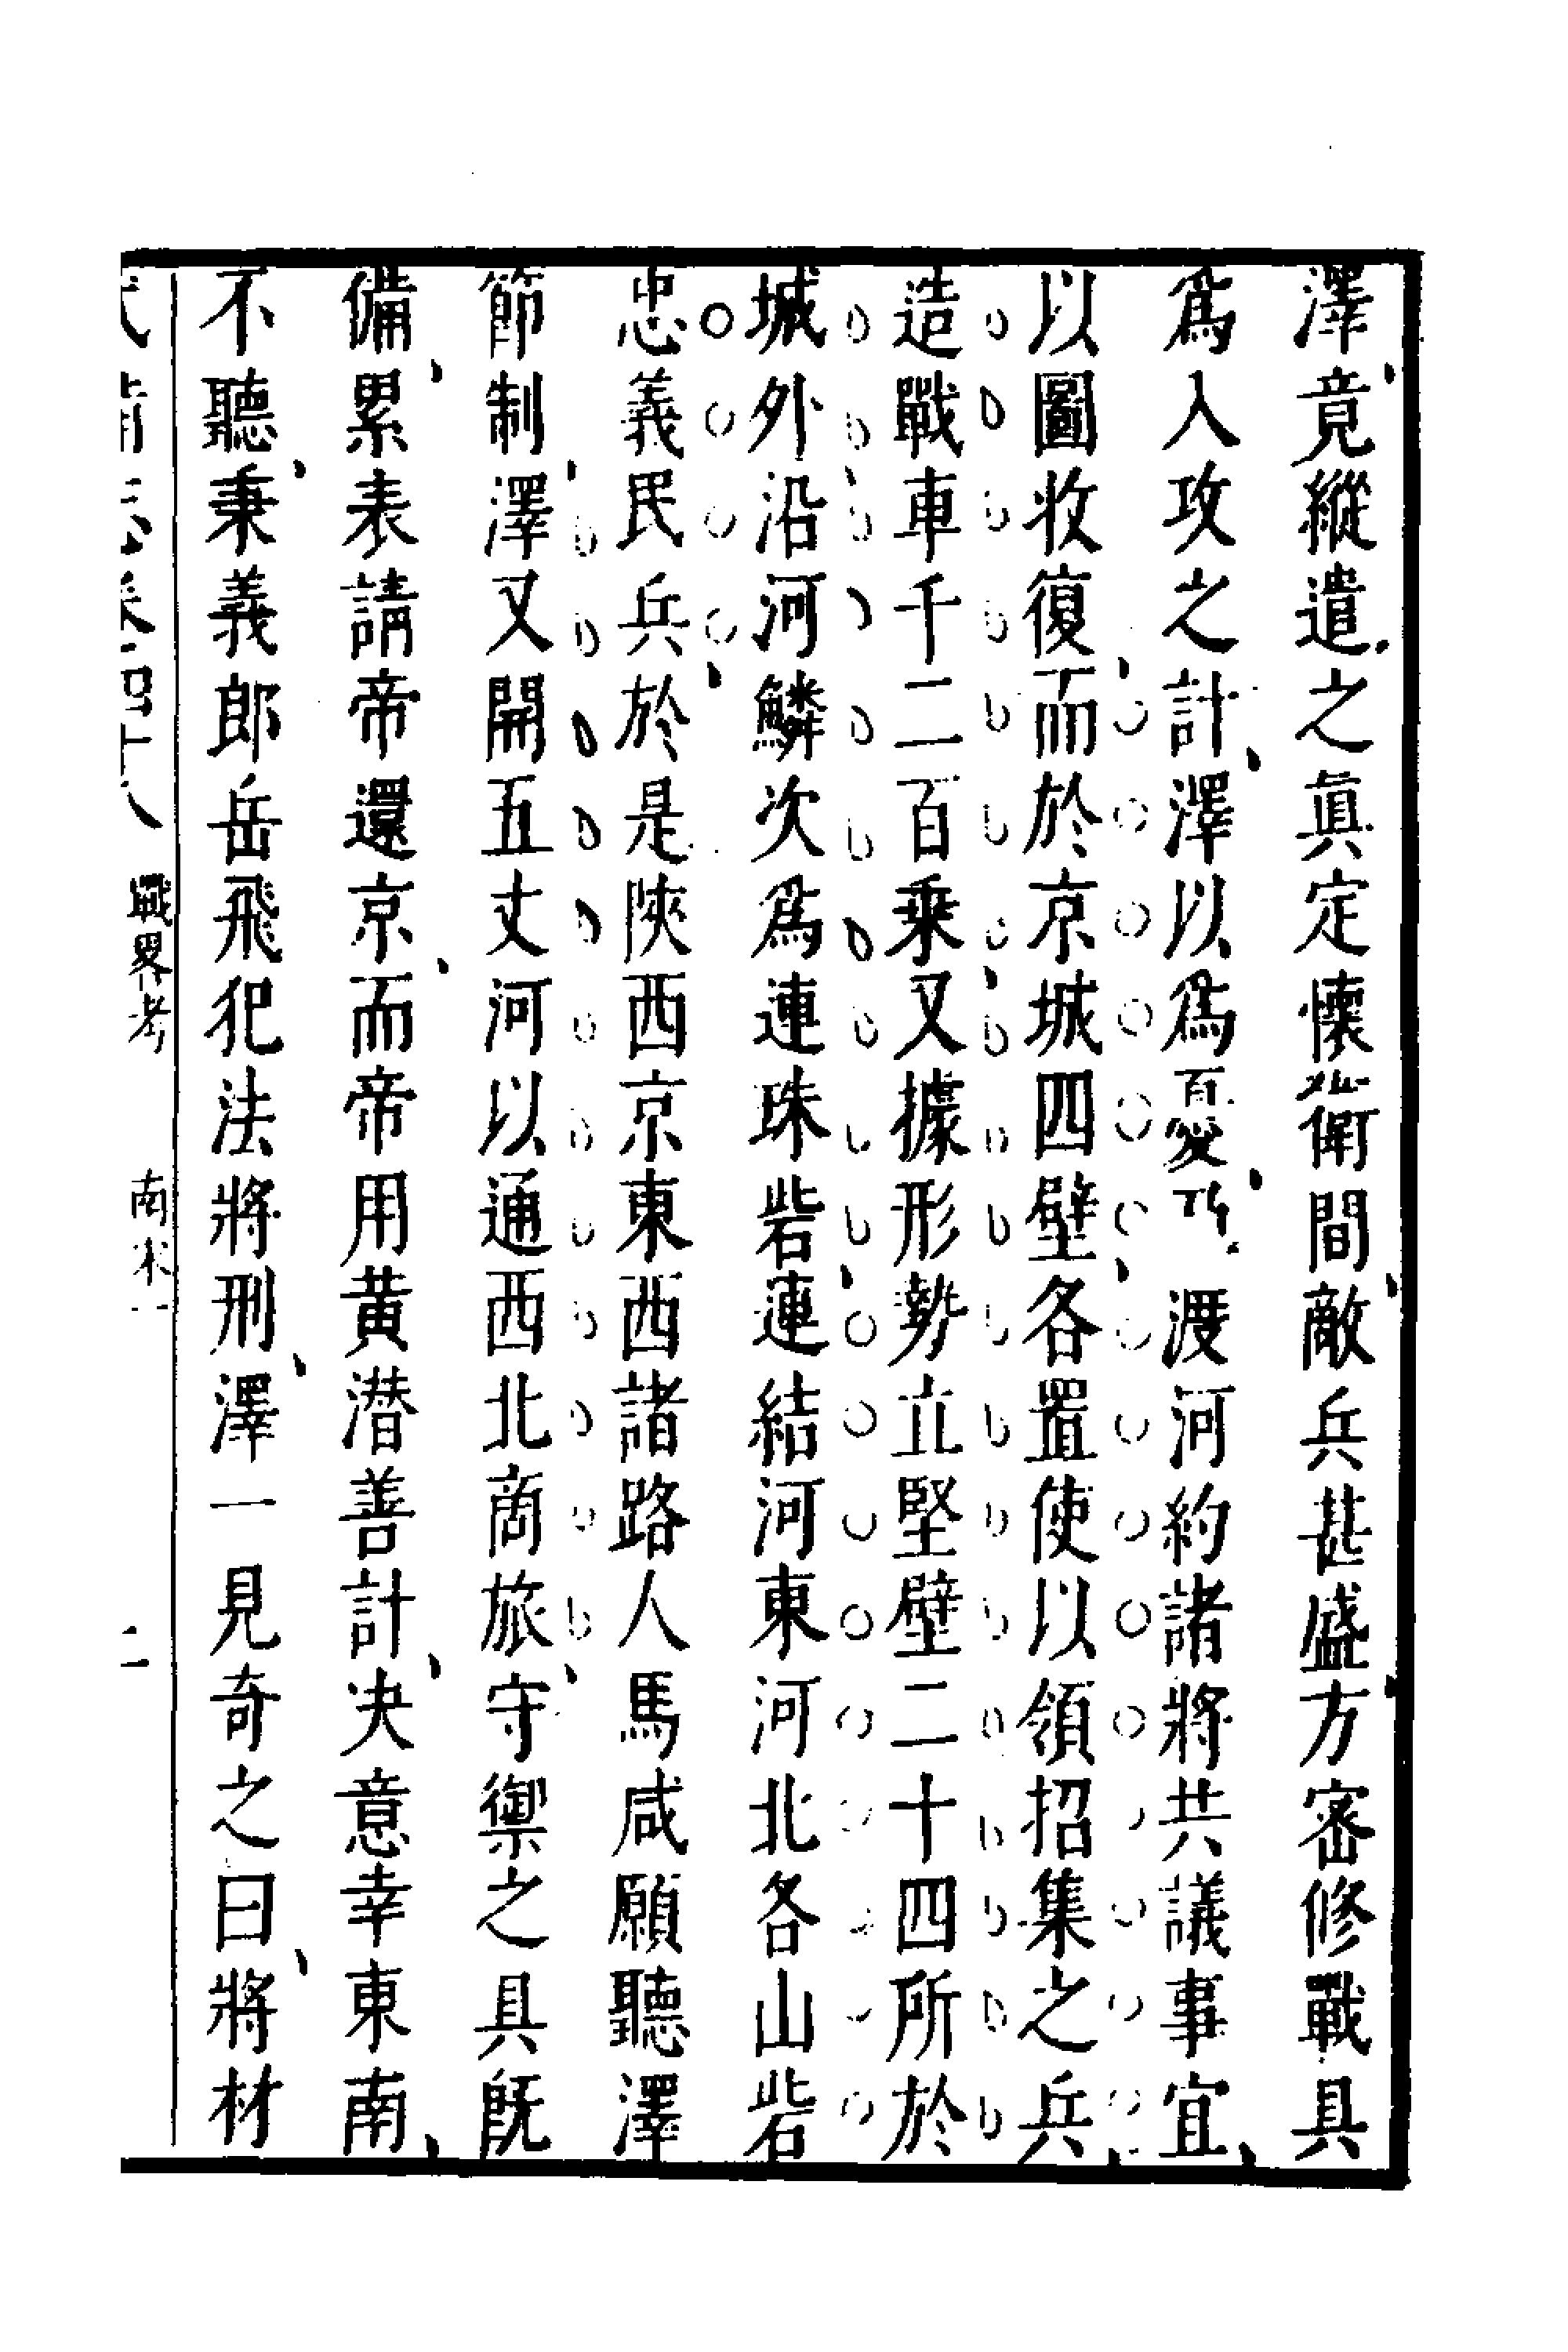 澤竟縱遣之眞定懷衛間敵兵甚盛方密修戰具
爲入攻之計澤以爲憂乃渡河約諸將共議事宜
以圖收復而於京城四壁各置使以領招集之兵
造戰車千二百乘又據形勢立堅壁二十四所於
城外沿河鱗次爲連珠砦連結河東河北各山砦
忠義民兵於是陝西京東西諸路人馬咸願聽澤
節制澤又開五丈河以通西北商旅守禦之具旣
備累表請帝還京而帝用黃潛善計决意幸東南
不聽秉義郎岳飛犯法將刑澤一見奇之曰將材
武備志卷四十八 戰畧考 南宋一 二